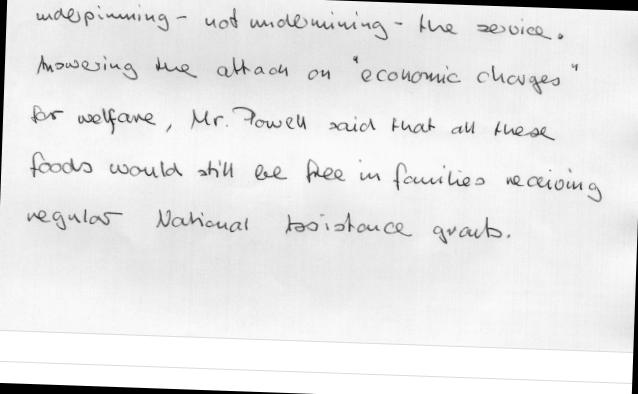 underpinning - not undermining - the service.
Answering the attack on "economic charges"
for welfare, Mr. Powell said that all these
foods would still be free in families receiving
regular National Assistance grants.